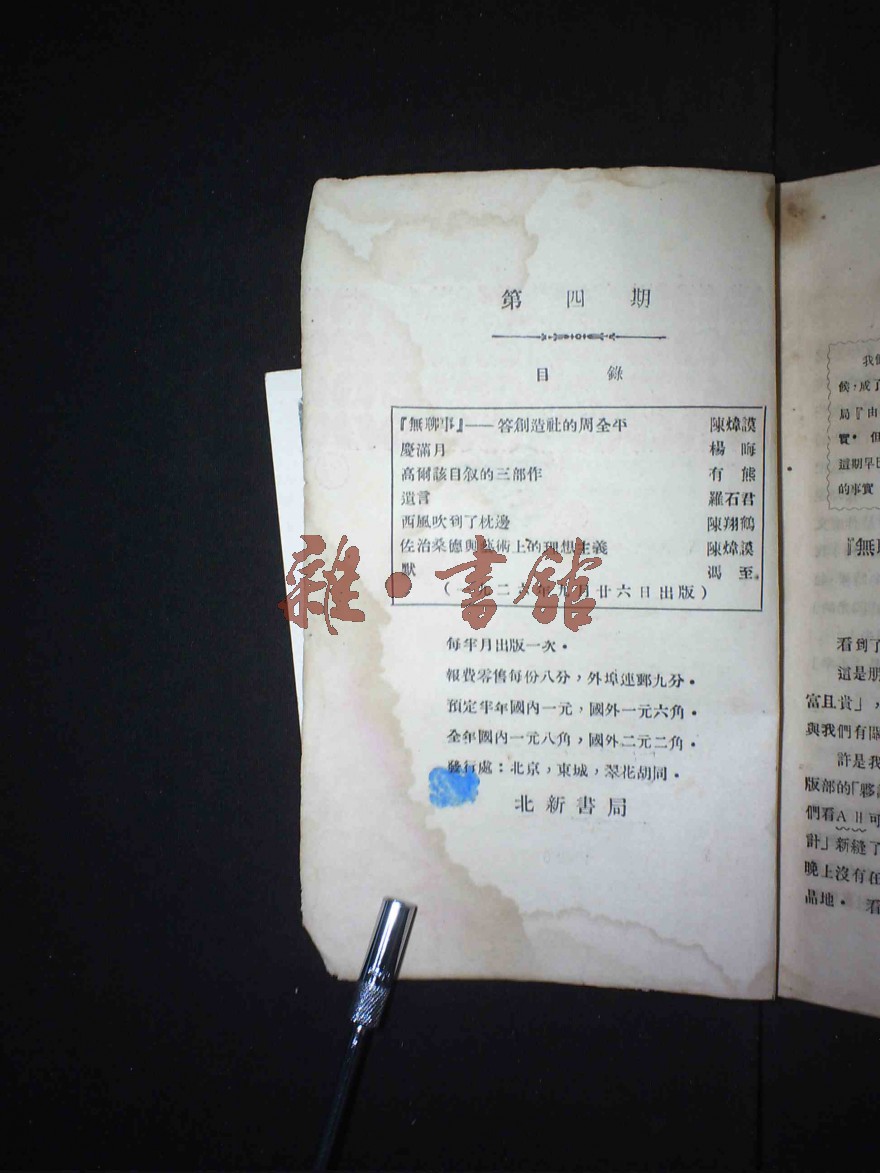 第四期
目錄
『無聊事』——答創造社的周全平 陳煒謨
慶滿月 楊晦
高爾該自敘的三部作 有熊
遺言 羅石君
西風吹到了枕邊 陳翔鶴
佐治桑德與藝術上的理想主義 陳煒謨
默 馮至
(一九二六年九月廿六日出版)
每半月出版一次。
報費零售每份八分，外埠連郵九分。
預定半年國內一元，國外一元六角。
全年國內一元八角，國外二元二角。
發行處：北京，東城，翠花胡同。
北新書局
雜·書館
我們
候，成了
局『由
實。但
這期早已
的事實
『無聊
看到了
這是朋
富且貴」，
與我們有關
許是我
版部的「夥計
們看AH可
計」新縫了
晚上沒有在
品地。看